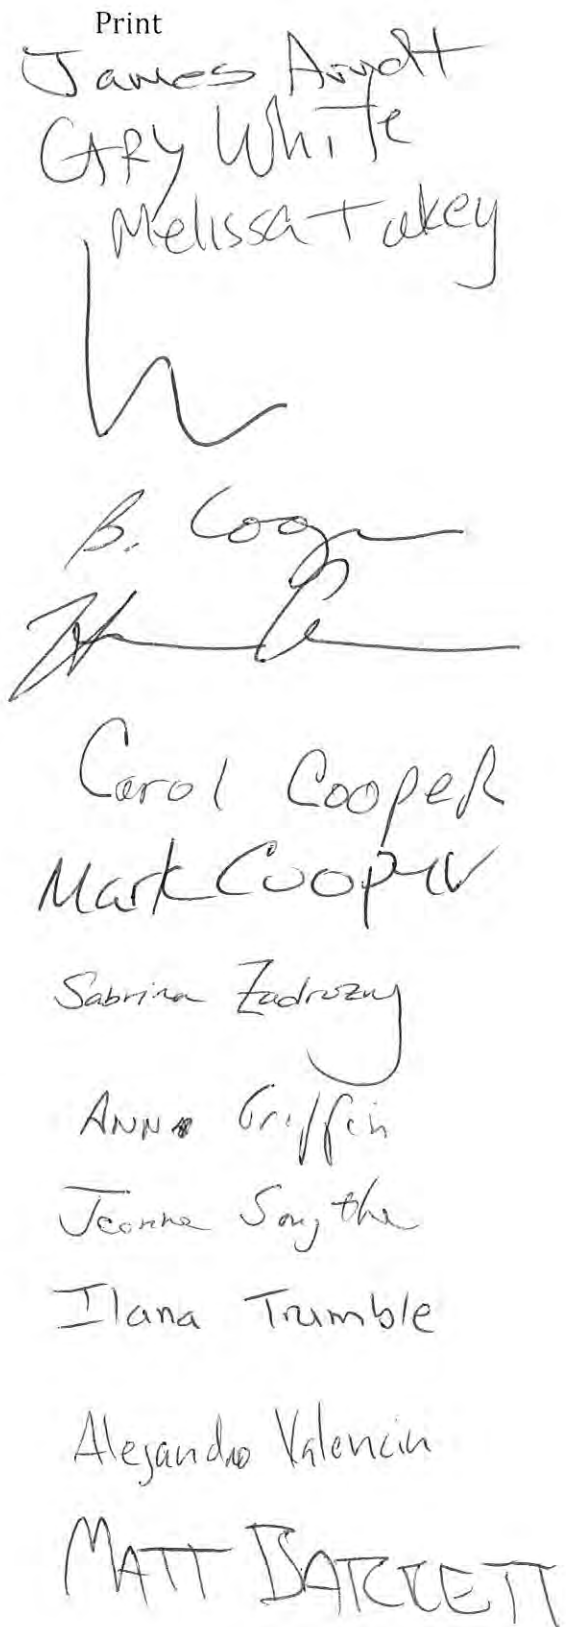 Print
James Arndt
GARY White
Melissa Tukey
B.
Carol Cooper
Mark Cooper
Sabrina Zadrozny
Anna Griffin
Ilana Trumble
Alejandro Valencia
MATT BARRETT